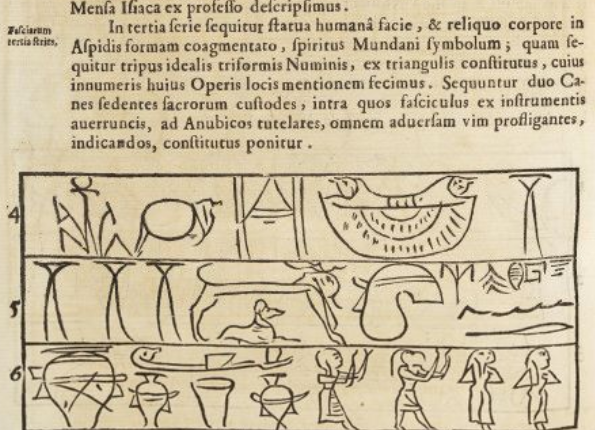 Mensa Isiaca ex professo descripsimus.
Fasciarum
tertia series.
In tertia serie sequitur statua humanâ facie, & reliquo corpore in
Aspidis formam coagmentato, spiritus Mundani symbolum; quam se-
quitur tripus idealis triformis Numinis, ex triangulis constitutus, cuius
innumeris huius Operis locis mentionem fecimus. Sequuntur duo Ca-
nes sedentes sacrorum custodes, intra quos fasciculus ex instrumentis
auerruncis, ad Anubicos tutelares, omnem aduersam vim profligantes,
indicandos, constitutus ponitur.
4
5
6